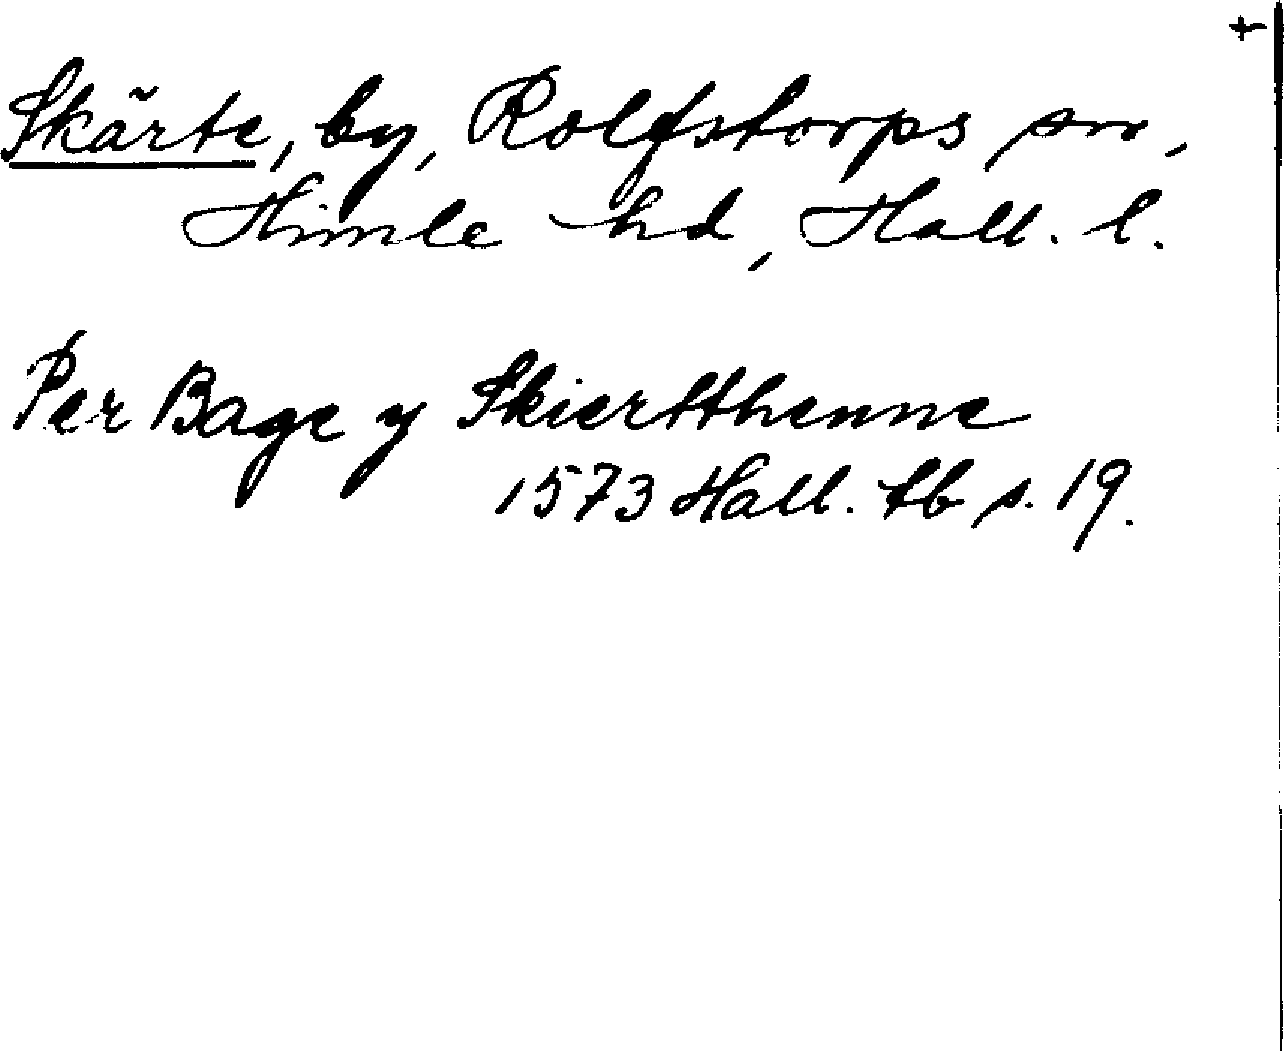 t
Skärte, by, Rolfstorps sn,
Himle hd, Hall. l.
Per Bage y Skiertthenne
1573 Hall. tb s. 19.